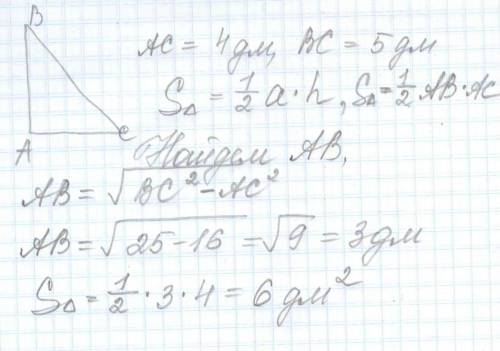 B
AC = 4 дм, BC = 5 дм
S△ = 1/2 a · h, S△ = 1/2 AB · AC
A C
Найдем AB.
AB = √(BC² - AC²)
AB = √(25 - 16) = √9 = 3 дм
S△ = 1/2 · 3 · 4 = 6 дм²